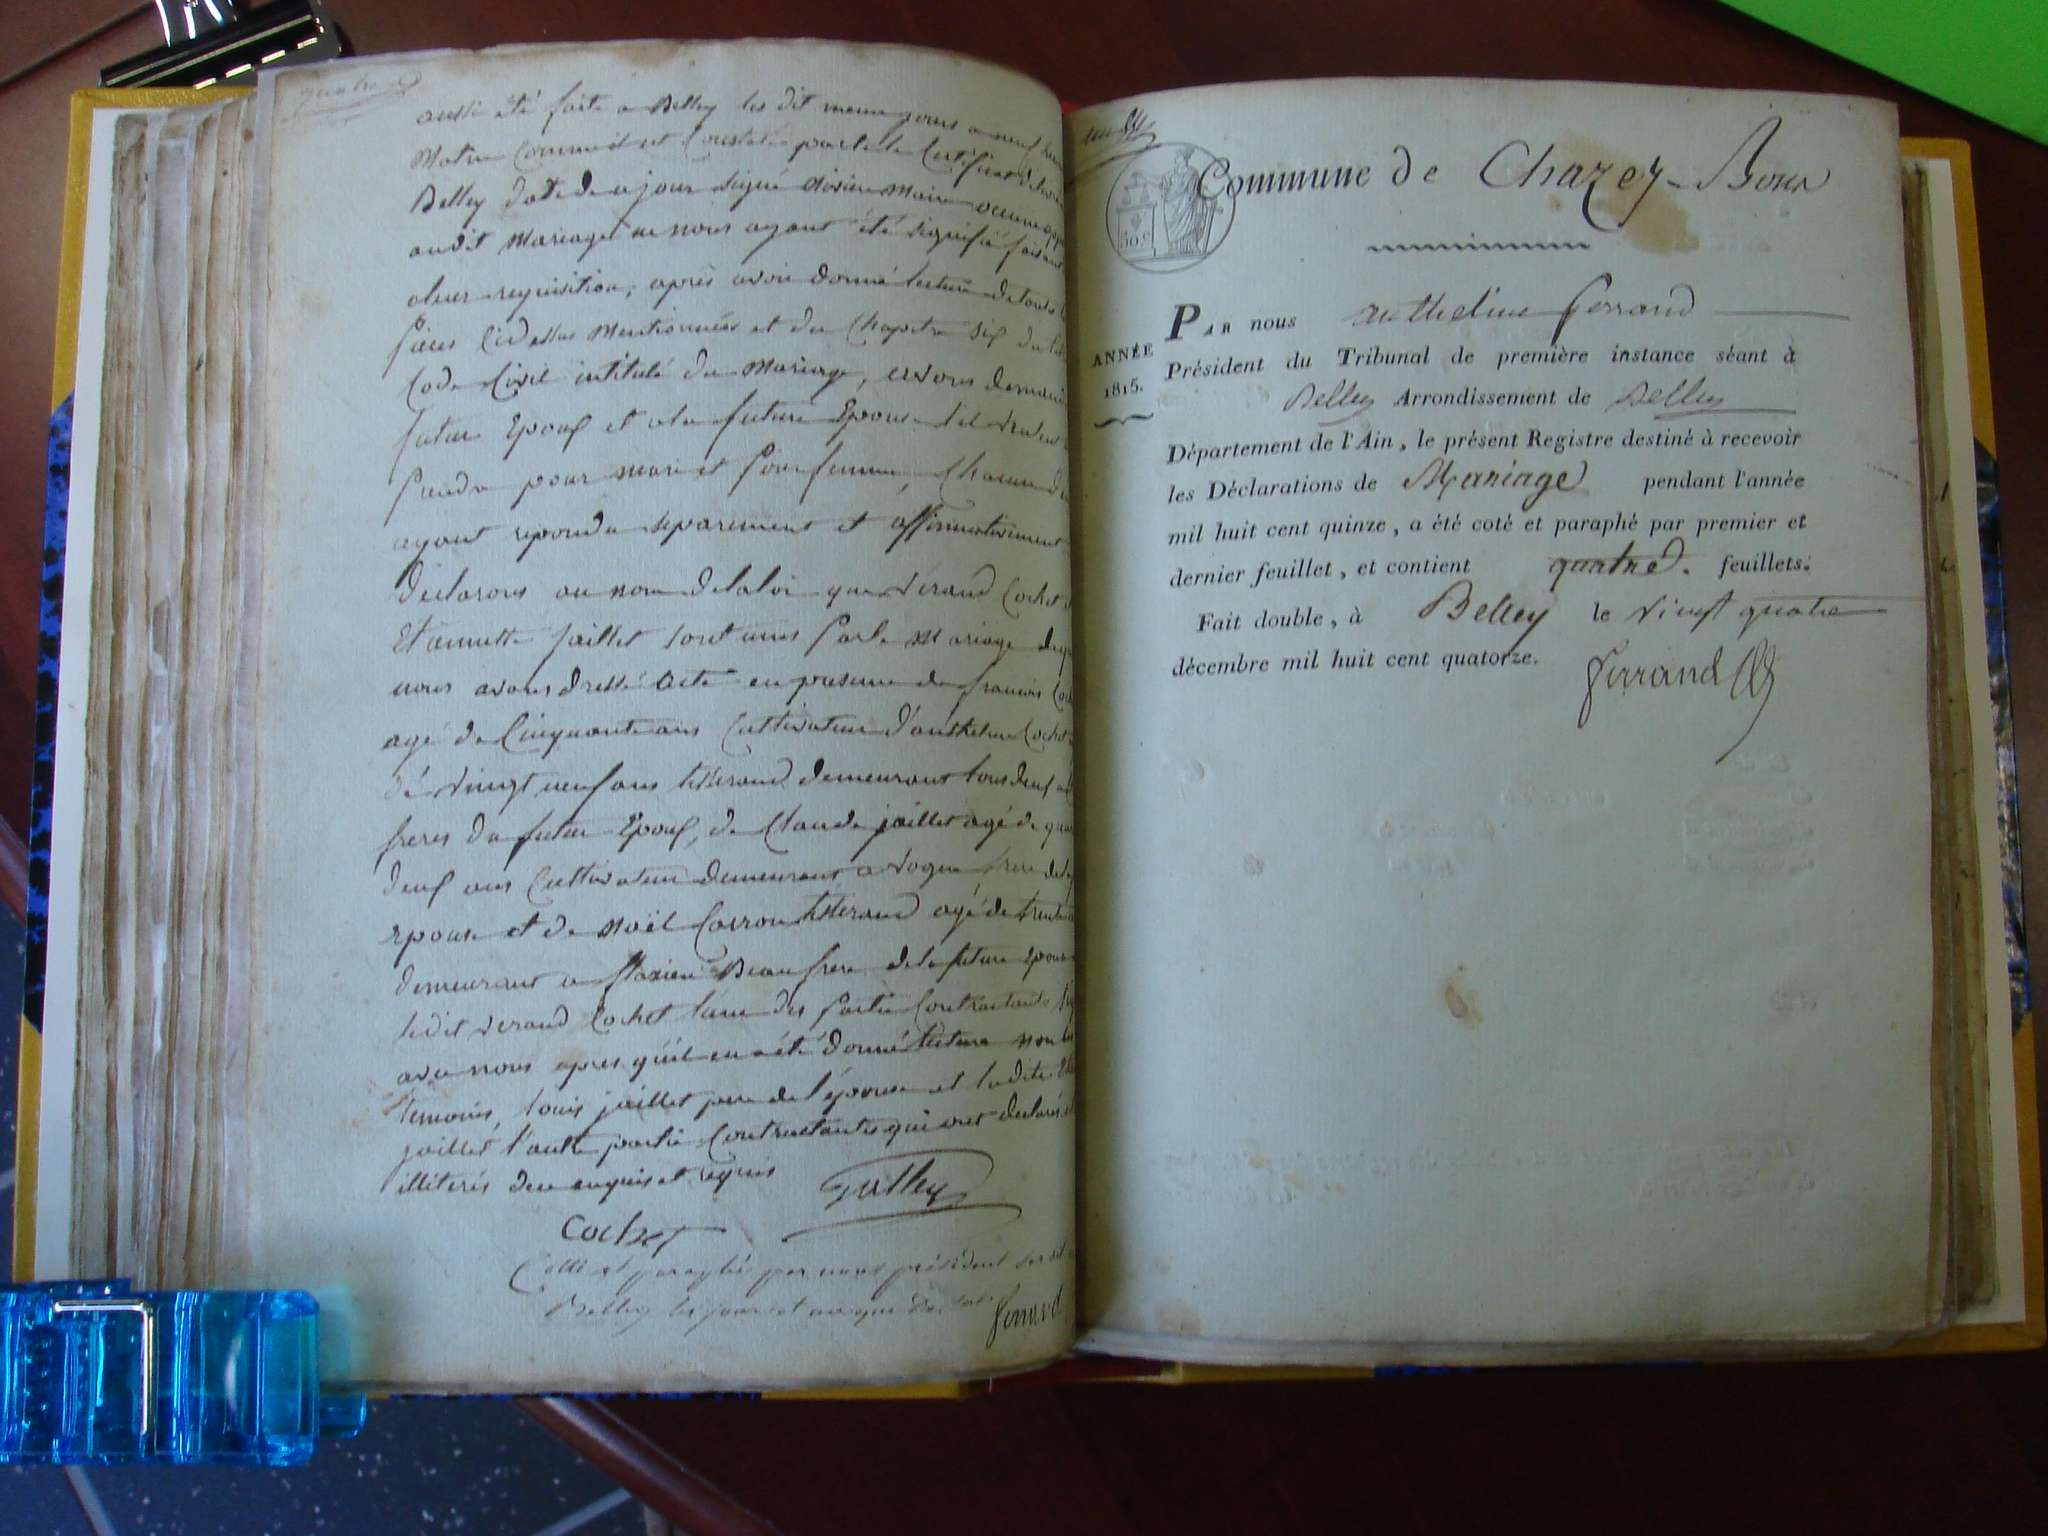 quatre
aussi été faite a Belley les dit meme jours a neuf heu
Matin comme il est Constaté par le Certificat
Belley date de ce jour signé Maire aucune oppo
audit Mariage ne nous ayant été signifié faisant
aleur requisition, après avoir donné lecture de toutes
pieces Cidessus Mentionnées et du Chapitre six du
Code Civil intitulé du Mariage, avons demandé
futur Epoux et ala future Epouse s'il veulent
prendre pour mari et pour femme, Chacun d'
ayant repondu separement et affirmativement
declarons au nom de la loi que Vérand Cochet
Et annette jaillet sont unis par le Mariage de
nous avons dressé acte en presence de francois
agé de Cinquante ans Cultivateur d'anthelme Cochet
dé vingt neuf ans tisserand demeurant tous deux
freres du futur Epoux, de Claude jaillet agé de qua
deux ans Cultivateur demeurant a frere de
epouse et de Noël Carron tisserand agé de trente
demeurant a flaxieu Beaufrere de la future Epouse
ledit verand Cochet l'une des partie Contractante
avec nous apres qu'il en a été donné lecture non les
temoins, louis jaillet pere de l'épouse et ladite
jaillet l'autre partie Contractantes qui ont declarés
illiterés de ce enquis et requis
Cochet
Cotté et paraphé par nous président
Belley les jour et an que
ferrand
un
Commune de Chazey-Bons
50 c
PAR nous Anthelme ferrand
ANNÉE
1815.
Président du Tribunal de première instance séant à
Belley Arrondissement de Belley
Département de l'Ain, le présent Registre destiné à recevoir
les Déclarations de Mariage pendant l'année
mil huit cent quinze, a été coté et paraphé par premier et
dernier feuillet, et contient quatre feuillets.
Fait double, à Belley le vingt quatre
décembre mil huit cent quatorze.
ferrand